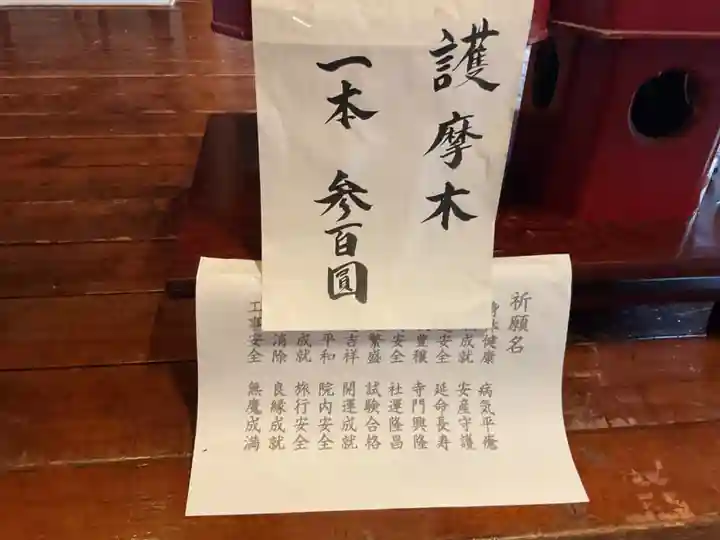 護摩木
一本 参百圓
祈願名
身体健康 病気平癒
成就 安産守護
安全 延命長寿
豊穣 寺門興隆
安全 社運隆昌
繁盛 試験合格
吉祥 開運成就
平和 院内安全
成就 旅行安全
消除 良縁成就
工事安全 無魔成満